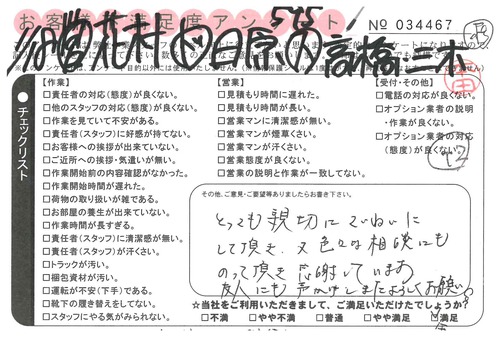 お客様満足度アンケート
№ 034467
575
高橋三木
42
チェックリスト
【作業】
□責任者の対応(態度)が良くない。
□他のスタッフの対応(態度)が良くない。
□作業を見ていて不安がある。
□責任者(スタッフ)に好感が持てない。
□お客様への挨拶が出来ていない。
□ご近所への挨拶・気遣いが無い。
□作業開始前の内容確認がなかった。
□作業開始時間が遅れた。
□荷物の取り扱いが雑である。
□お部屋の養生が出来ていない。
□作業時間が長すぎる。
□責任者(スタッフ)に清潔感が無い。
□責任者(スタッフ)が汗くさい。
□トラックが汚い。
□梱包資材が汚い。
□運転が不安(下手)である。
□靴下の履き替えをしてない。
□スタッフにやる気がみられない。
【営業】
□見積もり時間に遅れた。
□見積もり時間が長い。
□営業マンに清潔感が無い。
□営業マンが煙草くさい。
□営業マンが汗くさい。
□営業態度が良くない。
□営業の説明と作業が一致してない。
【受付・その他】
□電話の対応が良くない。
□オプション業者の説明
・作業が良くない。
□オプション業者の対応
(態度)が良くない。
その他、ご意見・ご要望等ありましたらお書き下さい。
とっても親切にていねいに
して頂き、又色々な相談にも
のって頂き感謝しています
友人にも声かけしますよろしくお願い
☆当社をご利用いただきまして、ご満足いただけたでしょうか？
□不満 □やや不満 □普通 □やや満足 □満足